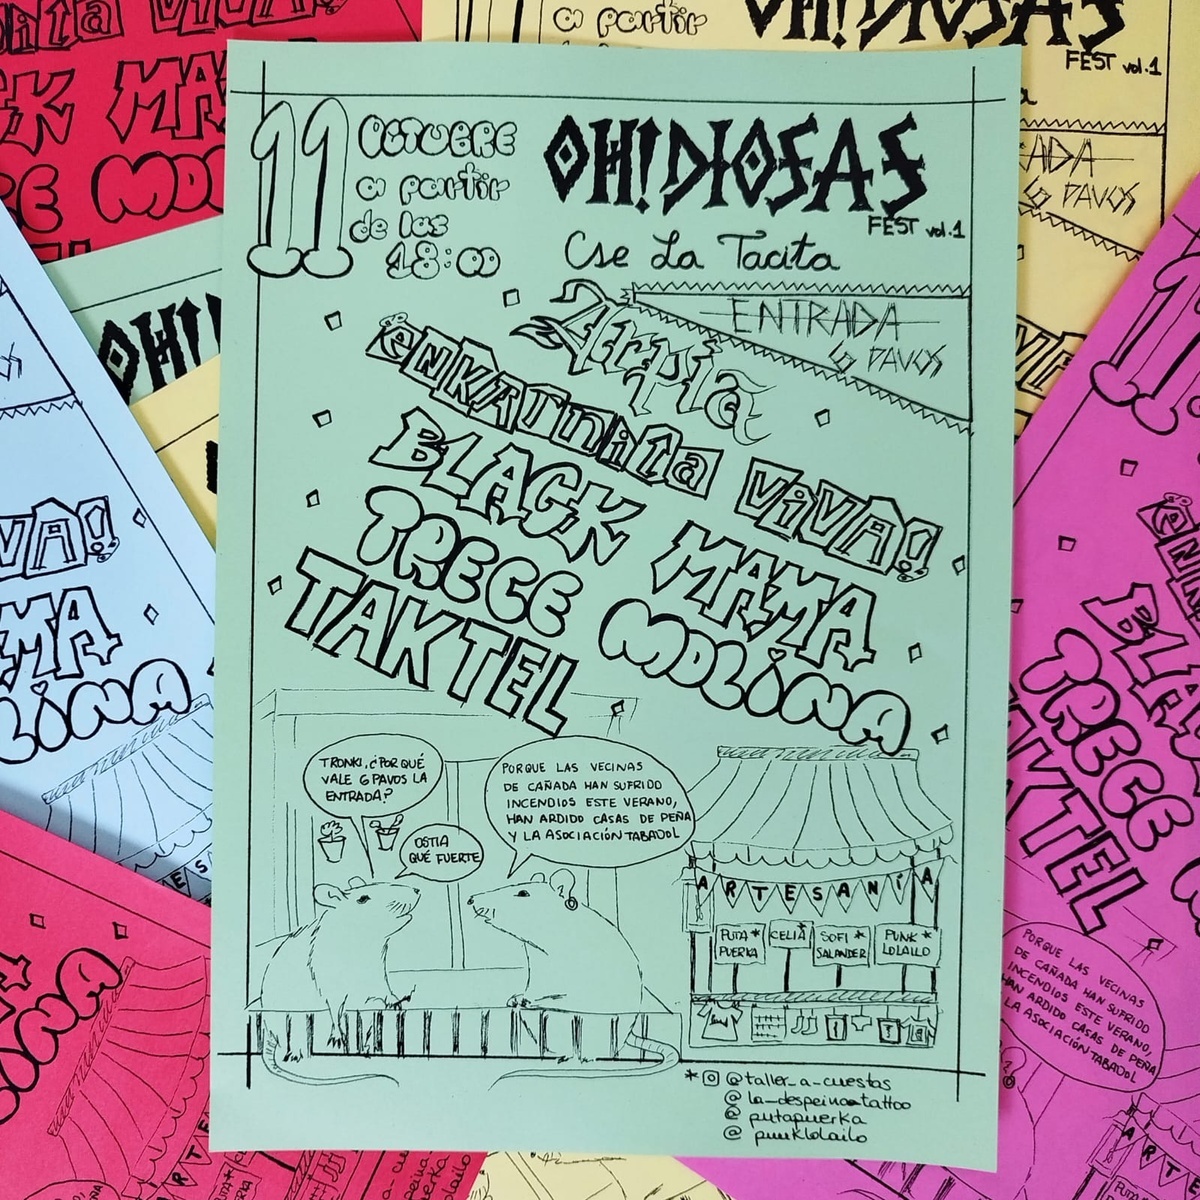 11 OCTUBRE
a partir
de las
18:00
OH!DIOSAS
FEST vol.1
Cse La Tacita
ENTRADA
6 PAVOS
Arpía
enkarnita VIVA!
BLACK MAMA
TRECE MOLINA
TAKTEL
TRONKI, ¿POR QUÉ
VALE 6 PAVOS LA
ENTRADA?
OSTIA
QUÉ FUERTE
PORQUE LAS VECINAS
DE CAÑADA HAN SUFRIDO
INCENDIOS ESTE VERANO,
HAN ARDIDO CASAS DE PEÑA
Y LA ASOCIACIÓN TABADOL
ARTESANÍA
PUTA*
PUERKA
CELIA*
SOFI *
SALANDER
PUNK *
LOLAILO
* @taller_a_cuestas
@ la_despeina_tattoo
@ putapuerka
@ punklolailo